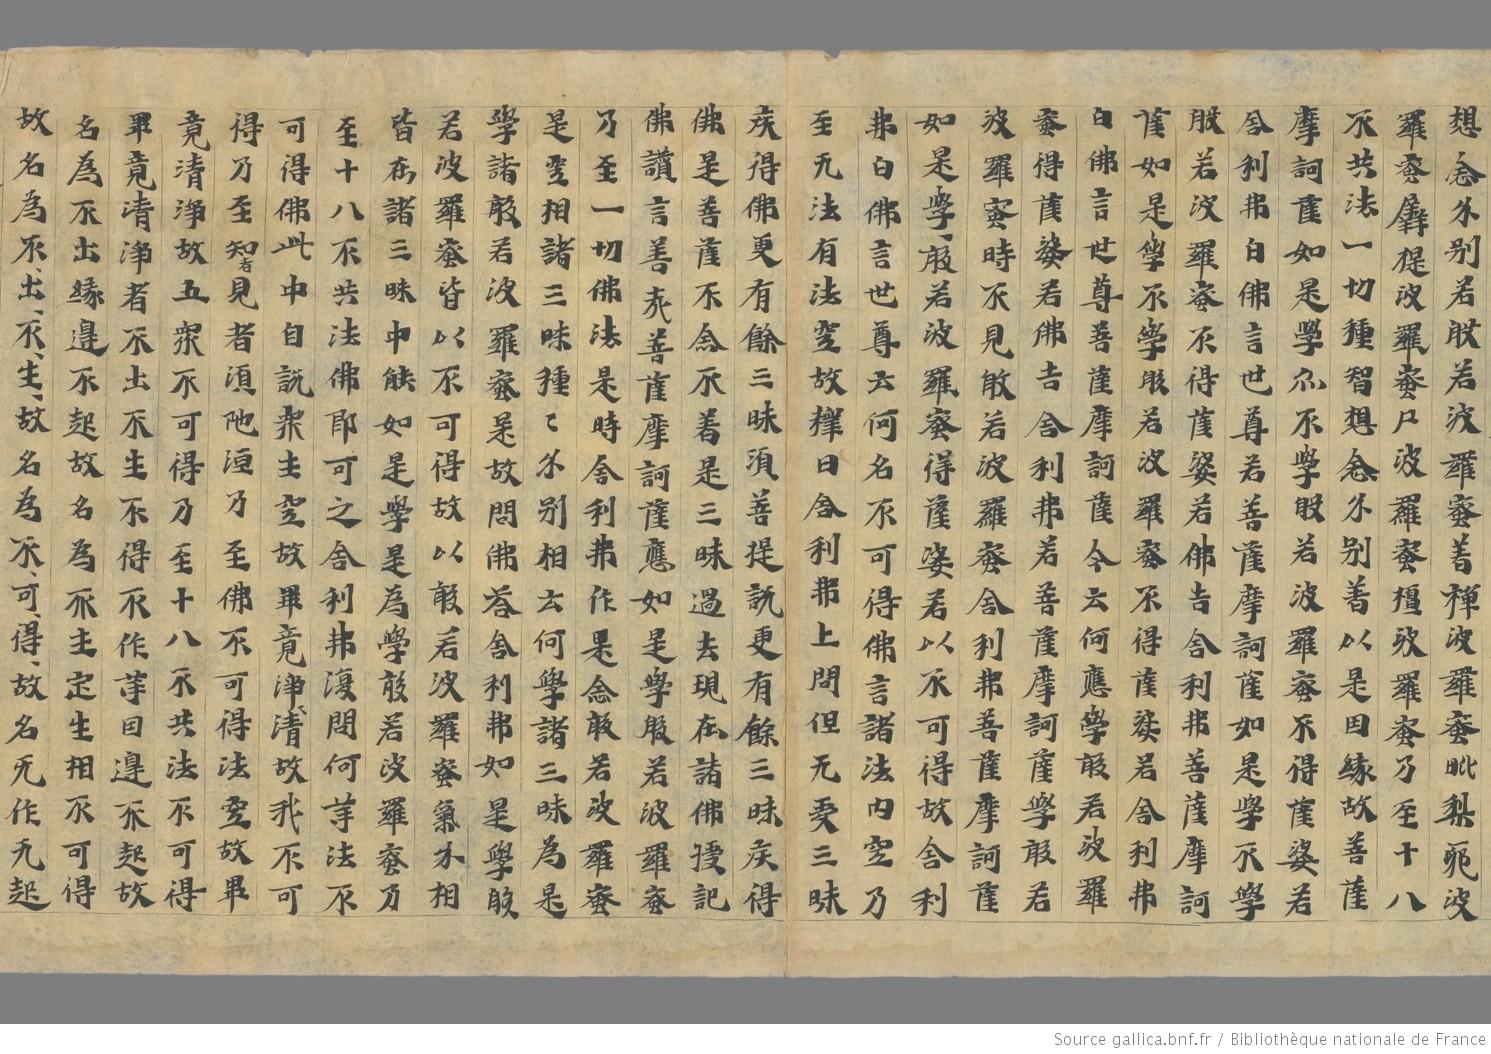 想念分别若般若波羅蜜若禪波羅蜜毗梨耶波
羅蜜羼提波羅蜜尸波羅蜜檀波羅蜜乃至十八
不共法一切種智想念分别善以是因緣故菩薩
摩訶薩如是學介不學般若波羅蜜不得薩婆若
舍利弗白佛言世尊若菩薩摩訶薩如是學不學
般若波羅蜜不得薩婆若佛告舍利弗菩薩摩訶
薩如是學不學般若波羅蜜不得薩婆若舍利弗
白佛言世尊菩薩摩訶薩今云何應學般若波羅
蜜得薩婆若佛告舍利弗若菩薩摩訶薩學般若
波羅蜜時不見般若波羅蜜舍利弗菩薩摩訶薩
如是學般若波羅蜜得薩婆若以不可得故舍利
弗白佛言世尊云何名不可得佛言諸法内空乃
至无法有法空故釋曰舍利弗上問但无受三昧
疾得佛更有餘三昧須菩提說更有餘三昧疾得
佛是菩薩不念不著是三昧過去現在諸佛授記
佛讚言善哉善薩摩訶薩應如是學般若波羅蜜
乃至一切佛法是時舍利弗作是念般若波羅蜜
是空相諸三昧種〻分别相云何學諸三昧為是
學諸般若波羅蜜是故問佛答舍利弗如是學般
若波羅蜜皆以不可得故以般若波羅蜜氣分相
皆在諸三昧中能如是學是為學般若波羅蜜乃
至十八不共法佛即可之舍利弗復問何等法不
可得佛此中自說衆生空故畢竟淨清故我不可
得乃至知者見者須陁洹乃至佛不可得法空故畢
竟清淨故五衆不可得乃至十八不共法不可得
畢竟清淨者不出不生不得不作等因邊不起故
名為不出緣邊不起故名為不生定生相不可得
故名為不出不生故名為不可得故名无作无起